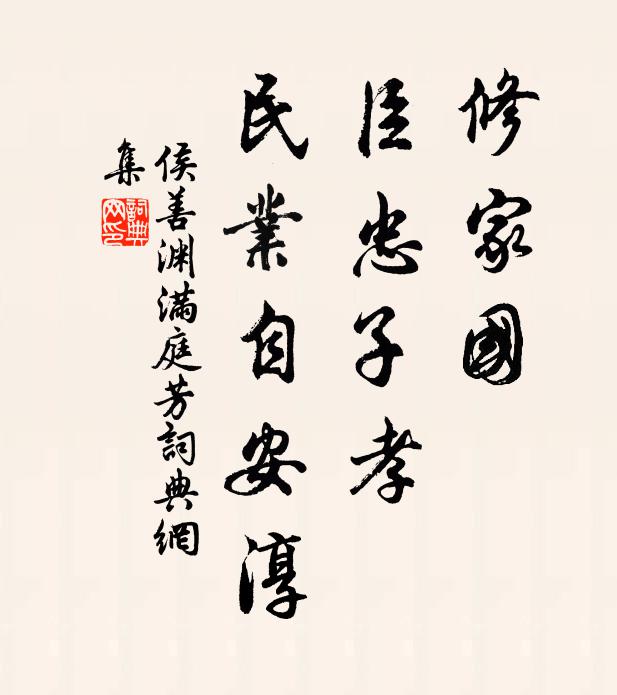 修家國
臣忠子孝
民業自安淳
侯善渊满庭芳詞典網
集
詞典網印